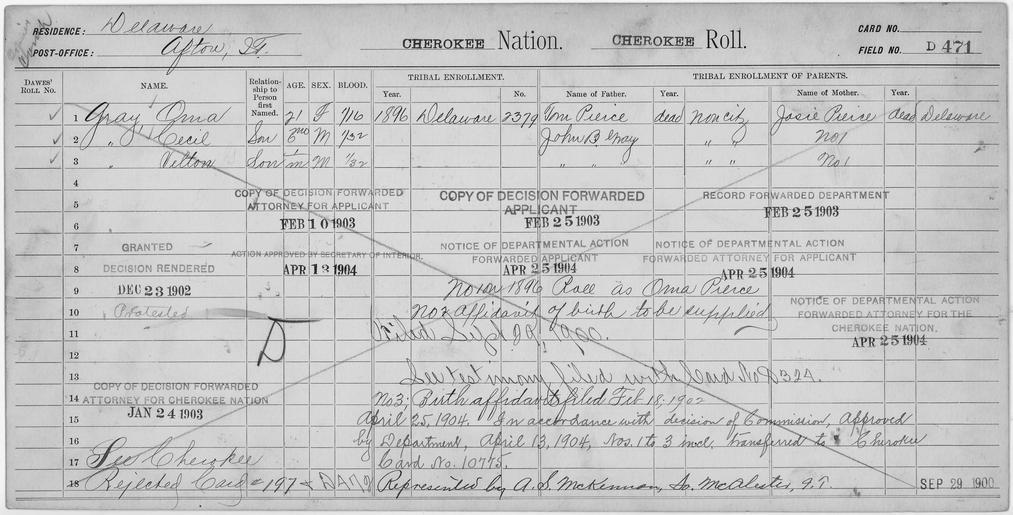 RESIDENCE: Delaware
POST-OFFICE: Afton, I.T.
CHEROKEE Nation. CHEROKEE Roll.
CARD NO.
FIELD NO. D 471
DAWES' ROLL NO. NAME. Relationship to Person first Named. AGE. SEX. BLOOD. TRIBAL ENROLLMENT. TRIBAL ENROLLMENT OF PARENTS.
Year. No. Name of Father. Year. Name of Mother. Year.
1 Gray Oma 21 F 1/16 1896 Delaware 2379 Tom Pierce dead non city Josie Pierce dead Delaware
2 " Cecil Son M 1/32 John B. Gray " " No 1
3 " Vilton Son M 1/32 " " " " " No 1
4
5 COPY OF DECISION FORWARDED ATTORNEY FOR APPLICANT COPY OF DECISION FORWARDED APPLICANT RECORD FORWARDED DEPARTMENT
6 FEB 10 1903 FEB 25 1903 FEB 25 1903
7 GRANTED NOTICE OF DEPARTMENTAL ACTION FORWARDED APPLICANT NOTICE OF DEPARTMENTAL ACTION FORWARDED ATTORNEY FOR APPLICANT
8 DECISION RENDERED ACTION APPROVED BY SECRETARY OF INTERIOR. APR 13 1904 APR 25 1904 APR 25 1904
9 DEC 23 1902 No 1 on 1896 Roll as Oma Pierce
10 Protested No 2 affidavit of birth to be supplied NOTICE OF DEPARTMENTAL ACTION FORWARDED ATTORNEY FOR THE CHEROKEE NATION.
11 D Filed Sept. 29, 1900. APR 25 1904
12
13 See testimony filed with Card No D 324.
COPY OF DECISION FORWARDED
14 ATTORNEY FOR CHEROKEE NATION No 3: Birth affidavit filed Feb 18, 1902
15 JAN 24 1903 April 25, 1904. In accordance with decision of Commission, approved
16 by Department, April 13, 1904, Nos. 1 to 3 incl. transferred to Cherokee
17 See Cherokee Card No. 10775.
18 Rejected Card # 197 Represented by A. S. McKennon, So. McAlester, I.T. SEP 29 1900